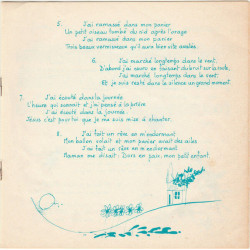 5. J'ai ramassé dans mon panier
Un petit oiseau tombé du nid après l'orage
J'ai ramassé dans mon panier
Trois beaux vermisseaux qu'il aura bien vite avalés.
6. J'ai marché longtemps dans le vent
D'abord j'ai senti se faisant du bruit sur la route,
J'ai marché longtemps dans le vent
Et je suis resté dans le silence un grand moment
7. J'ai écouté dans la journée
L'heure qui sonnait et j'ai pensé à la prière
J'ai écouté dans la journée
Jésus c'est pour toi que je me suis mise à chanter.
8. J'ai fait un rêve en m'endormant
Mon ballon volait et mon panier avait des ailes
J'ai fait un rêve en m'endormant
Maman me disait : Dors en paix, mon petit enfant